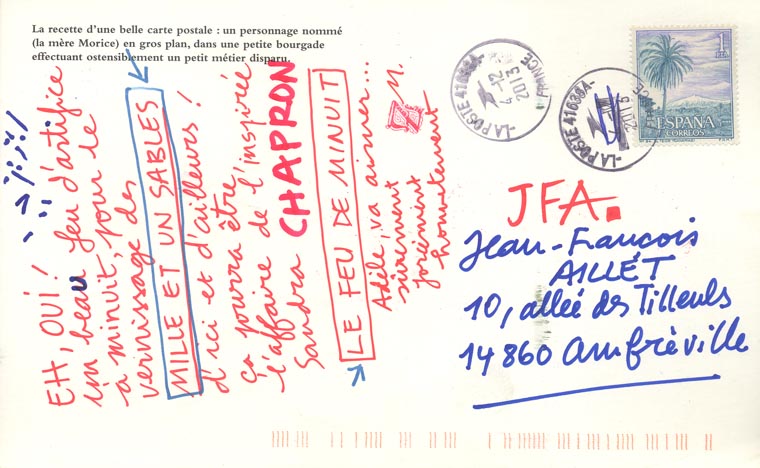 La recette d'une belle carte postale : un personnage nommé
(la mère Morice) en gros plan, dans une petite bourgade
effectuant ostensiblement un petit métier disparu.
EH, OUI !
un beau feu d'artifice
à minuit, pour le
vernissage des
MILLE ET UN SABLES
d'ici et d'ailleurs !
ça pourra être
l'affaire de l'inspirée
Sandra CHAPRON
LE FEU DE MINUIT
Adèle, va aimer...
sûrement
forcément
honnêtement
M.
-LA POSTE 41636A-
4-12
2013
FRANCE
-LA POSTE 41636A-
2013
1
PTA
ESPAÑA
CORREOS
JFA.
Jean-François
AILLET
10, allée des Tilleuls
14860 Amfréville